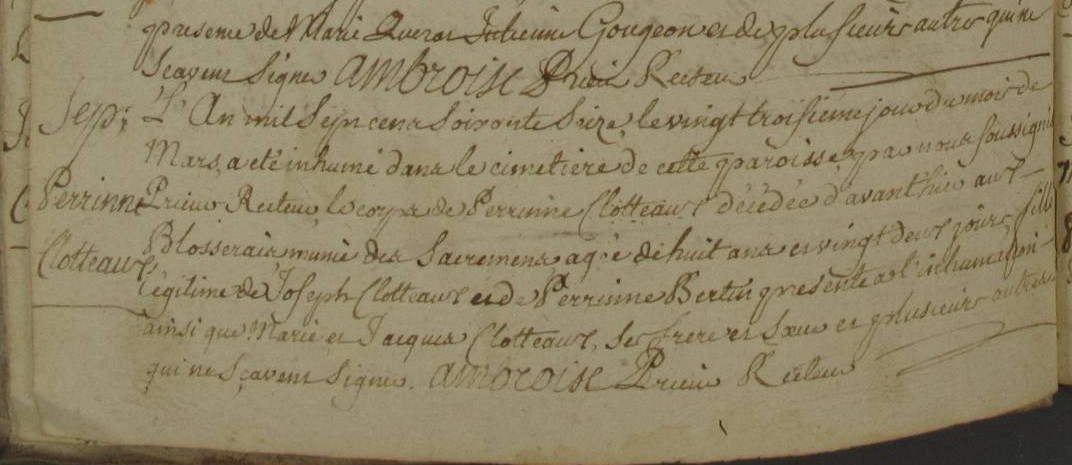 presence de Marie Queror Julienne Gougeon et de plusieurs autres qui ne
Sçavent Signer Ambroise Prieur Recteur
Sep: L'An mil Sept cent Soixante Seize, le vingt troisieme jour du mois de
Mars, a été inhumé dans le cimetiere de cette paroisse par nous Soussigné
Perrinne Prieur Recteur, le corps de Perrinne Clotteaux décédée d'avant'hier aux
Clotteaux Blosserais munie des Sacremens agée de huit ans et vingt deux jours, fille
légitime de Joseph Clotteaux et de Perrinne Bertin présente a l'inhumation
ainsi que Marie et Jacques Clotteaux, Ses frere et Sœur et plusieurs autres
qui ne Sçavent Signer. Ambroise Prieur Recteur